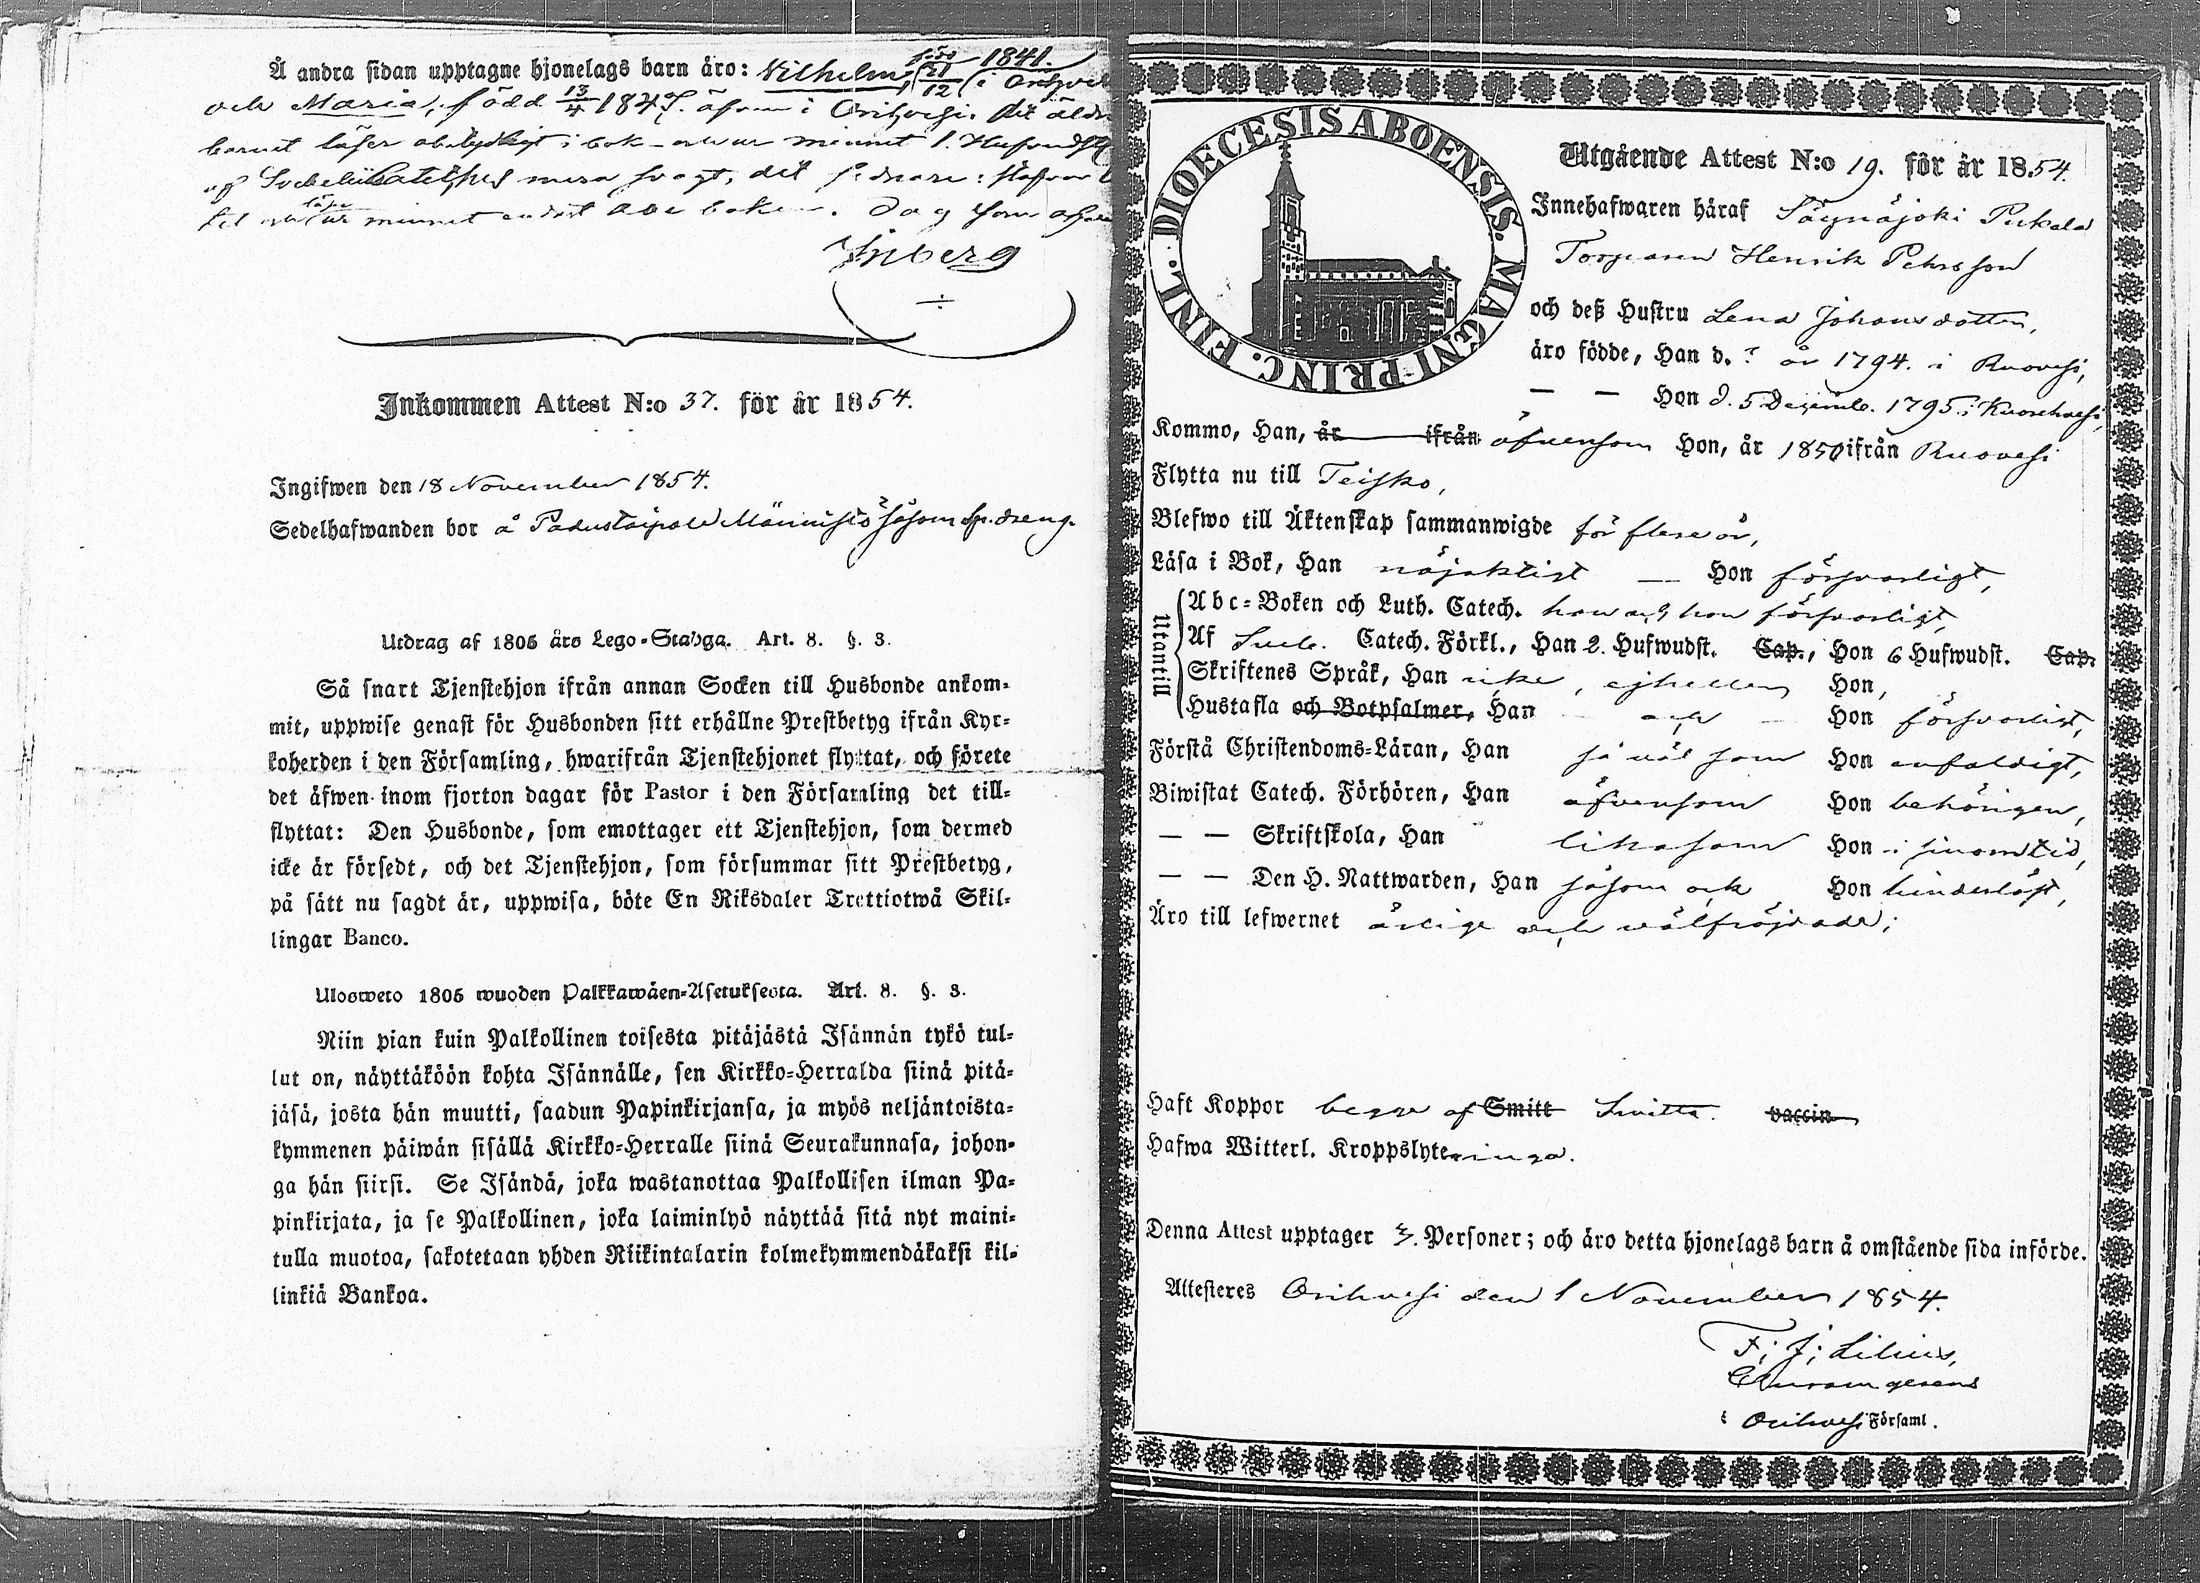 Å andra sidan upptagne hjonelags barn äro: Wilhelm, född 21/12 1841. i
och Maria, född 13/4 184 i Orihvesi. Det
barnet läser i bok och ur minnet 1. Hufvudst
af mera svagt, det
till och läser ur minnet endast Abc boken. Dag som ofvan
Inberg
Inkommen Attest N:o 37. för år 1854.
Ingifwen den 18 November 1854.
Sedelhafwanden bor å Männistö såsom dreng.
Utdrag af 1805 års Lego-Stadga. Art. 8. §. 3.
Så snart Tjenstehjon ifrån annan Socken till Husbonde ankom-
mit, uppwise genast för Husbonden sitt erhållne Prestbetyg ifrån Kyr-
koherden i den Församling, hwarifrån Tjenstehjonet flyttat, och förete
det äfwen inom fjorton dagar för Pastor i den Församling det till-
flyttat: Den Husbonde, som emottager ett Tjenstehjon, som dermed
icke är försedt, och det Tjenstehjon, som försummar sitt Prestbetyg,
på sätt nu sagdt är, uppwisa, böte En Riksdaler Trettiotwå Skil-
lingar Banco.
Ulosweto 1805 wuoden Palkkawäen-Asetuksesta. Art. 8. §. 3.
Niin pian kuin Palkollinen toisesta pitäjästä Isännän tykö tul-
lut on, näyttäköön kohta Isännälle, sen Kirkko-Herralda siinä pitä-
jäsä, josta hän muutti, saadun Papinkirjansa, ja myös neljäntoista-
kymmenen päiwän sisällä Kirkko-Herralle siinä Seurakunnasa, johon-
ga hän siirsi. Se Isändä, joka wastanottaa Palkollisen ilman Pa-
pinkirjata, ja se Palkollinen, joka laiminlyö näyttää sitä nyt maini-
tulla muotoa, sakotetaan yhden Riikintalarin kolmekymmendäkaksi kil-
linkiä Bankoa.
DIOECESIS ABOENSIS. MAGNI PRINC. FINL.
Utgående Attest N:o 19. för år 1854.
Innehafwaren häraf Sägnäjoki Pukala
Torparen Henrik Pehrsson
och deß Hustru Lena Johansdotter,
äro födde, Han d. ? år 1794. i Ruovesi,
— — Hon d. 5 Decemb. 1795 i Kuorehvesi,
Kommo, Han, år ifrån äfvensom Hon, år 1850 ifrån Ruovesi
Flytta nu till Teisko,
Blefwo till Äktenskap sammanwigde för flere år,
Läsa i Bok, Han nöjaktigt — Hon försvarligt,
Utantill
Abc-Boken och Luth. Catech. han och hon försvarligt,
Af Sveb. Catech. Förkl., Han 2. Hufwudst. Cap., Hon 6 Hufwudst. Cap.
Skriftenes Språk, Han icke, ejheller Hon,
Hustafla och Botpsalmer, Han och Hon försvarligt,
Förstå Christendoms-Läran, Han så väl som Hon enfaldigt,
Biwistat Catech. Förhören, Han äfvensom Hon behörigen,
— — Skriftskola, Han likasom Hon i sinom tid,
— — Den H. Nattwarden, Han såsom ock Hon hinderlöst,
Äro till lefwernet ärlige och wälfrejdade;
Haft Koppor begge af Smitt Smitta. vaccin
Hafwa Witterl. Kroppslyten inga.
Denna Attest upptager 4. Personer; och äro detta hjonelags barn å omstående sida införde.
Attesteres Orihvesi den 1 November 1854.
F. J. Lilius,
Curam gerens
i Orihvesi Församl.